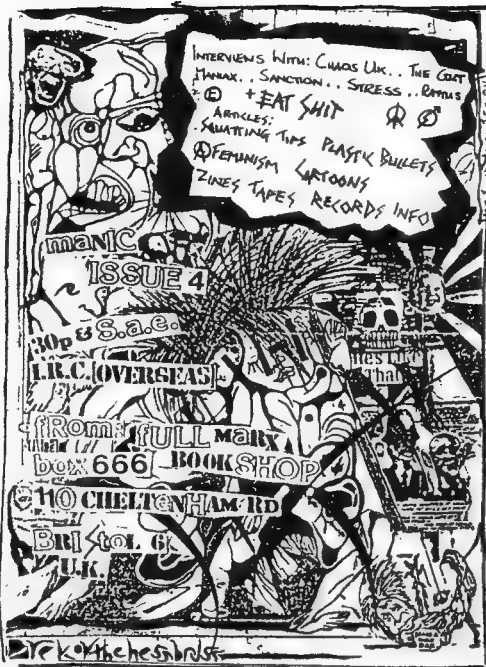 INTERVIEWS WITH: CHAOS UK.. THE GRIT
MANIAX.. SANCTION.. STRESS.. RATTUS
+ EAT SHIT
ARTICLES:
SQUATTING TIPS PLASTIC BULLETS
FEMINISM CARTOONS
ZINES TAPES RECORDS INFO
maNIC
ISSUE 4
30p & S.a.e.
I.R.C. [OVERSEAS]
fROm fULL MaRX
box 666 BOOKSHOP
110 CHELTENHAM RD
BRIStOL 6
U.K.